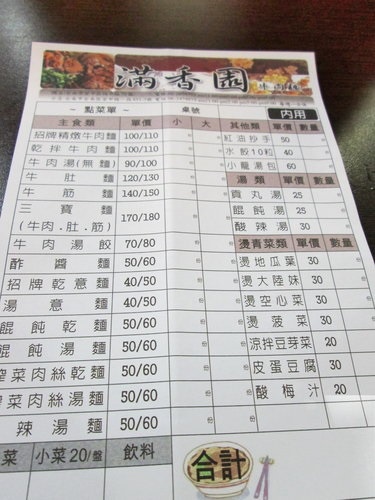 滿香園 牛肉麵
~ 點菜單 ~ 桌號 內用
主食類 單價 小 大 其他類 單價 數量
招牌精燉牛肉麵 100/110 紅油抄手 50
乾拌牛肉麵 100/110 水餃10粒 40
牛肉湯(無麵) 90/100 小籠湯包 60
牛肚麵 120/130 湯類 單價 數量
牛筋麵 140/150 貢丸湯 25
三寶麵 170/180 餛飩湯 25
(牛肉.肚.筋) 酸辣湯 30
牛肉湯餃 70/80 燙青菜類 單價 數量
酢醬麵 50/60 燙地瓜葉 30
招牌乾意麵 40/50 燙大陸妹 30
湯意麵 40/50 燙空心菜 30
餛飩乾麵 50/60 燙菠菜 30
餛飩湯麵 50/60 涼拌豆芽菜 20
榨菜肉絲乾麵 50/60 皮蛋豆腐 30
榨菜肉絲湯麵 50/60 酸梅汁 20
辣湯麵 50/60
菜 小菜20/盤 飲料 合計